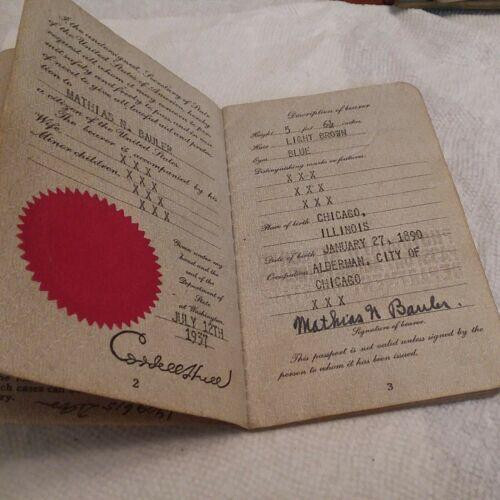 I, the undersigned, Secretary of State
of the United States of America, hereby
request all whom it may concern to permit
safely and freely to pass and in case
of need to give all lawful aid and protec-
tion to
MATHIAS N. BAULER
a citizen of the United States.
The bearer is accompanied by his
Wife, X X X
Minor children, X X X
X X X
X X X
Given under my
hand and the
seal of the
Department of
State
at Washington
JULY 12TH
1937
Cordell Hull
2
Description of bearer
Height 5 feet 6½ inches
Hair LIGHT BROWN
Eyes BLUE
Distinguishing marks or features:
X X X
X X X
X X X
Place of birth CHICAGO,
ILLINOIS
Date of birth JANUARY 27, 1890
Occupation ALDERMAN, CITY OF
CHICAGO
X X X
Mathias N Bauler.
Signature of bearer.
This passport is not valid unless signed by the
person to whom it has been issued.
3
ch cases can
ry.